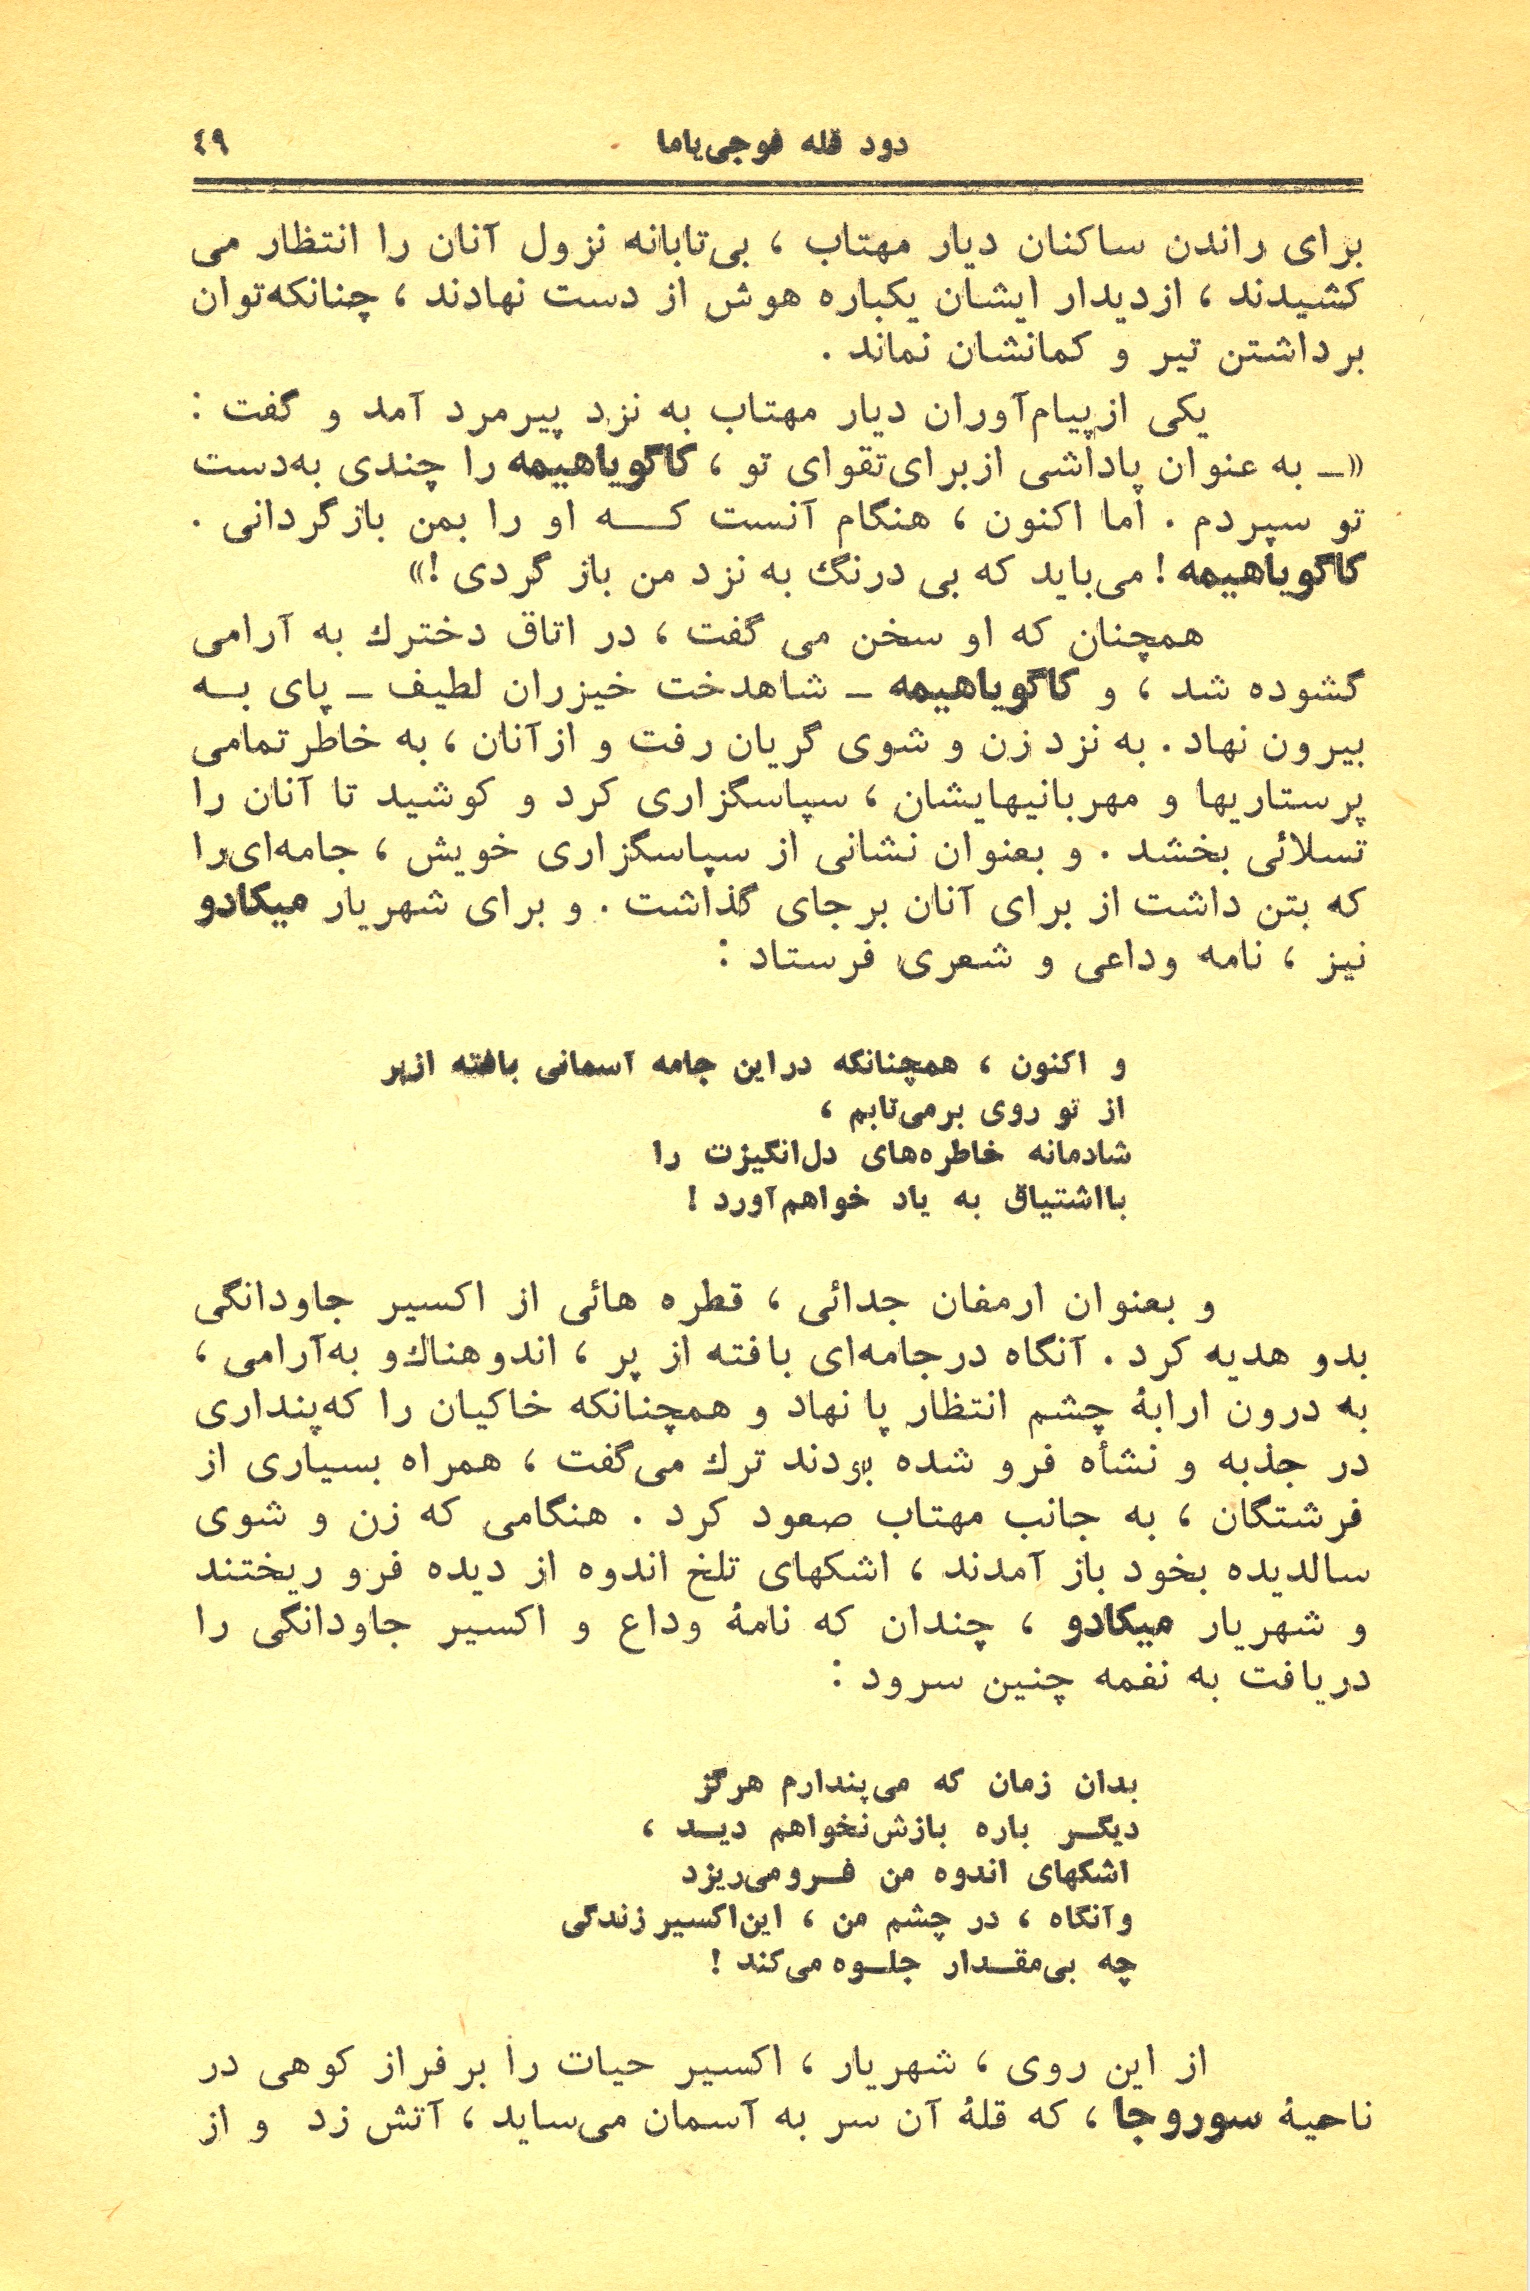 دود قله فوجی‌یاما ۴۹
برای راندن ساکنان دیار مهتاب ، بی‌تابانه نزول آنان را انتظار می
کشیدند ، ازدیدار ایشان یکباره هوش از دست نهادند ، چنانکه‌توان
برداشتن تیر و کمانشان نماند .
یکی ازپیام‌آوران دیار مهتاب به نزد پیرمرد آمد و گفت :
«ــ به عنوان پاداشی ازبرای‌تقوای تو ، کاگویاهیمه را چندی به‌دست
تو سپردم . اما اکنون ، هنگام آنست کــه او را بمن بازگردانی .
کاگویاهیمه ! می‌باید که بی درنگ به نزد من باز گردی !»
همچنان که او سخن می گفت ، در اتاق دخترك به آرامی
گشوده شد ، و کاگویاهیمه ـ شاهدخت خیزران لطیف ـ پای بــه
بیرون نهاد . به نزد زن و شوی گریان رفت و ازآنان ، به خاطرتمامی
پرستاریها و مهربانیهایشان ، سپاسگزاری کرد و کوشید تا آنان را
تسلائی بخشد . و بعنوان نشانی از سپاسگزاری خویش ، جامه‌ای‌را
که بتن داشت از برای آنان برجای گذاشت . و برای شهریار میکادو
نیز ، نامه وداعی و شعری فرستاد :
و اکنون ، همچنانکه دراین جامه آسمانی بافته ازپر
از تو روی برمی‌تابم ،
شادمانه خاطره‌های دل‌انگیزت را
بااشتیاق به یاد خواهم‌آورد !
و بعنوان ارمغان جدائی ، قطره هائی از اکسیر جاودانگی
بدو هدیه کرد . آنگاه درجامه‌ای بافته از پر ، اندوهناك‌و به‌آرامی ،
به درون ارابهٔ چشم انتظار پا نهاد و همچنانکه خاکیان را که‌پنداری
در جذبه و نشأه فرو شده بودند ترك می‌گفت ، همراه بسیاری از
فرشتگان ، به جانب مهتاب صعود کرد . هنگامی که زن و شوی
سالدیده بخود باز آمدند ، اشکهای تلخ اندوه از دیده فرو ریختند
و شهریار میکادو ، چندان که نامهٔ وداع و اکسیر جاودانگی را
دریافت به نغمه چنین سرود :
بدان زمان که می‌پندارم هرگز
دیگــر باره بازش‌نخواهم دیــد ،
اشکهای اندوه من فــرومی‌ریزد
وآنگاه ، در چشم من ، این‌اکسیر زندگی
چه بی‌مقــدار جلــوه می‌کند !
از این روی ، شهریار ، اکسیر حیات را برفراز کوهی در
ناحیهٔ سوروجا ، که قلهٔ آن سر به آسمان می‌ساید ، آتش زد و از